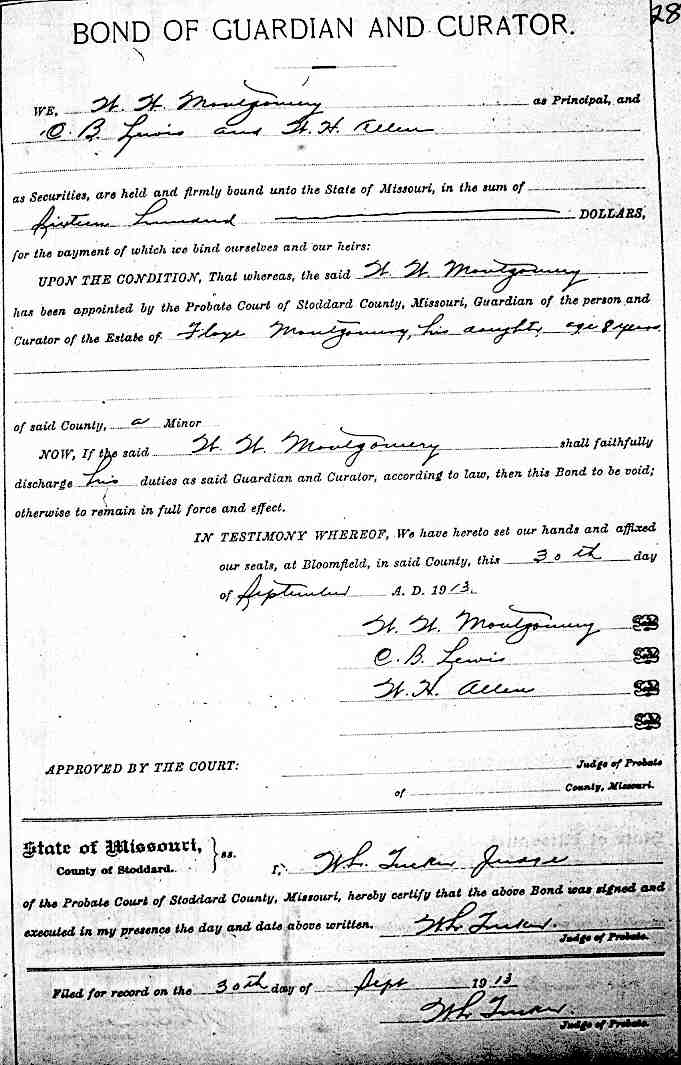 28
BOND OF GUARDIAN AND CURATOR.
WE, W. W. Montgomery as Principal, and
C. B. Lewis and W. H. Allen
as Securities, are held and firmly bound unto the State of Missouri, in the sum of
Sixteen Hundred DOLLARS,
for the payment of which we bind ourselves and our heirs:
UPON THE CONDITION, That whereas, the said W. W. Montgomery
has been appointed by the Probate Court of Stoddard County, Missouri, Guardian of the person and
Curator of the Estate of Floye Montgomery, his daughter age 8 years
of said County, a Minor
NOW, If the said W. W. Montgomery shall faithfully
discharge his duties as said Guardian and Curator, according to law, then this Bond to be void;
otherwise to remain in full force and effect.
IN TESTIMONY WHEREOF, We have hereto set our hands and affixed
our seals, at Bloomfield, in said County, this 30th day
of September A. D. 1913.
W. W. Montgomery
C. B. Lewis
W. H. Allen
APPROVED BY THE COURT: Judge of Probate
of County, Missouri.
State of Missouri, } ss.
County of Stoddard.
I, Wh. Tucker Judge
of the Probate Court of Stoddard County, Missouri, hereby certify that the above Bond was signed and
executed in my presence the day and date above written. Wh Tucker.
Judge of Probate.
Filed for record on the 30th day of Sept 1913
Wh Tucker.
Judge of Probate.